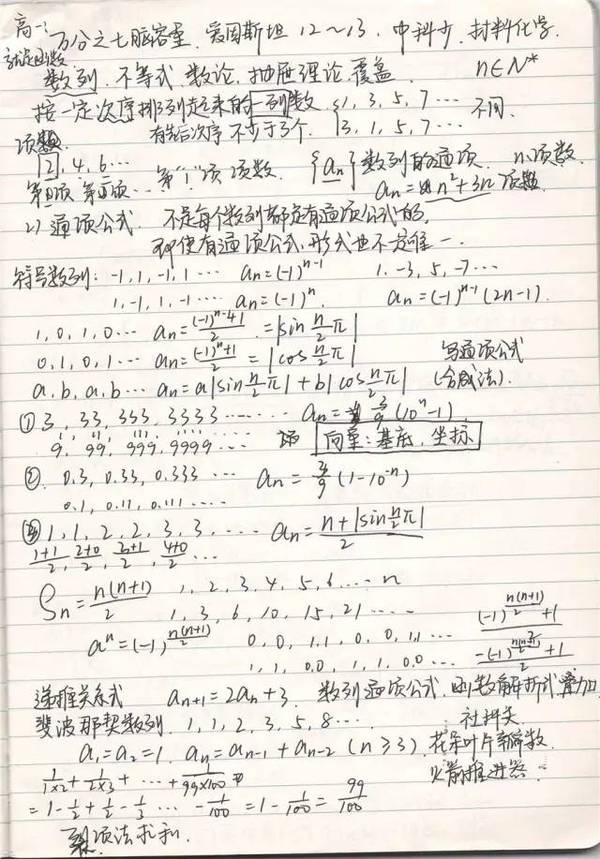 高一:
万分之七脑容量. 爱因斯坦 12～13. 中科少. 材料化学.
数列. 不等式. 数论. 抽屉理论. 覆盖. n∈N*
按一定次序排列起来的一列数 {1, 3, 5, 7 … 不同.
项数. 有先后次序 不少于3个. {3, 1, 5, 7 …
2, 4, 6… 第"1"项 项数. {an} 数列的通项. n 项数.
an = n²+3n 项数
2) 通项公式. 不是每个数列都定有通项公式的.
即使有通项公式, 形式也不一定唯一.
符号数列: -1, 1, -1, 1 … an=(-1)^(n-1) 1, -3, 5, -7 …
1, -1, 1, -1 … an=(-1)^n. an=(-1)^(n-1)(2n-1).
1, 0, 1, 0 … = |sin n/2 π|
0, 1, 0, 1 … an=((-1)^n+1)/2 = |cos n/2 π| 写通项公式
a, b, a, b … an=a|sin n/2 π| + b|cos n/2 π| (合成法).
① 3, 33, 333, 3333 …… an= 3/9 (10^n-1)
9, 99, 999, 9999 … 向量: 基底, 坐标
②. 0.3, 0.33, 0.333 … an = 3/9 (1-10^-n)
0.1, 0.11, 0.111 ….
③ 1, 1, 2, 2, 3, 3, …. an = (n+|sin n/2 π|)/2
(1+1)/2, (2+0)/2, (3+1)/2, (4+0)/2 …
Sn = n(n+1)/2 1, 2, 3, 4, 5, 6 …. n
1, 3, 6, 10, 15, 21 …..
a^n=(-1)^(n(n+1)/2) 0, 0, 1, 1, 0, 0, 1, 1 … ((-1)^(n(n+1)/2)+1)/2
1, 1, 0, 0, 1, 1, 0, 0 …
递推关系式 an+1 = 2an + 3. 数列通项公式. 函数解析式 叠加
斐波那契数列. 1, 1, 2, 3, 5, 8 …
a1=a2=1. an=an-1+an-2 (n≥3). 花朵叶片瓣数.
1/(1×2) + 1/(2×3) + … + 1/(99×100) 火箭推进器.
= 1-1/2+1/2-1/3 … -1/100 = 1-1/100 = 99/100
裂项法求和.